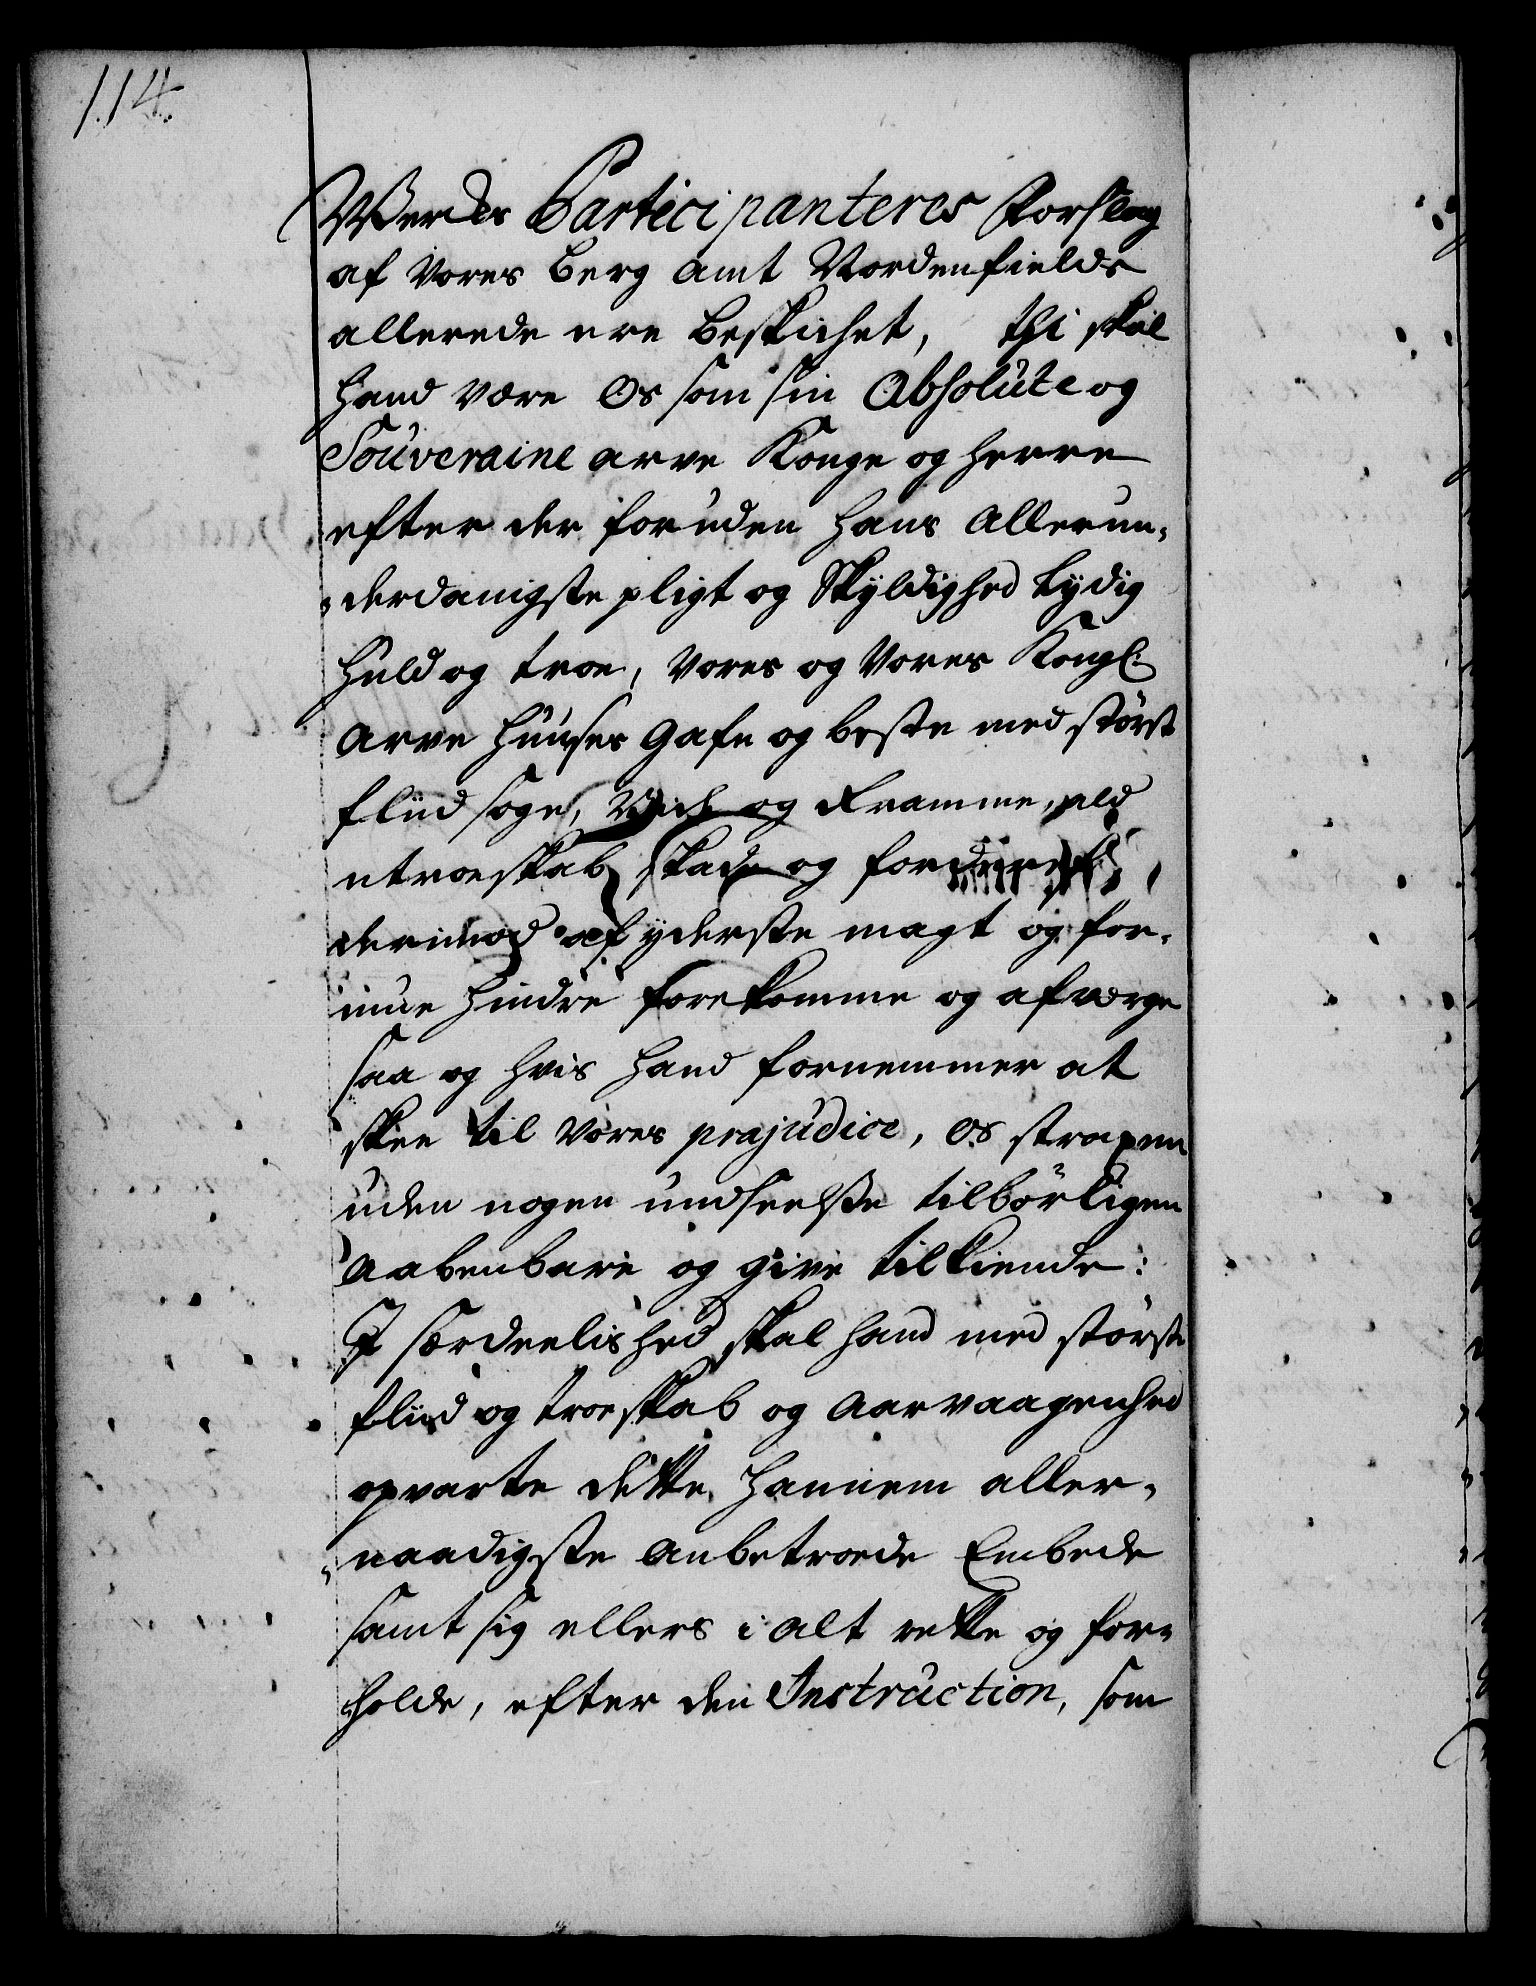 114.
Werckes Participanteres Forslag
af Vores Berg Amt Nordenfields
allerede ere beskichet, thi skal
hand være Os som sin Absolute og
Souveraine arve Konge og Herre
efter der foruden hans Allerun-
-derdanigste pligt og Skyldighed Lydig
huld og troe, Vores og Vores Kongl:
Arve Huuses Gafn og beste med störst
fliid søge, Vide og Framme, ald
utroeskab skade og fordærf,
derimod af yderste magt og for-
mue hindre forekomme og afværge
saa og hvis hand fornemmer at
skee til Vores præjudice, Os straxen
uden nogen undseelsse tilbörligen
Aabenbare og give tilkiende:
I særdeelished skal hand med störste
fliid og troeskab og Aarvaagenhed
opvarte dette hannem aller-
-naadigste Anbetroede Embede
samt sig ellers i alt rette og for-
holde, efter den Instruction, som